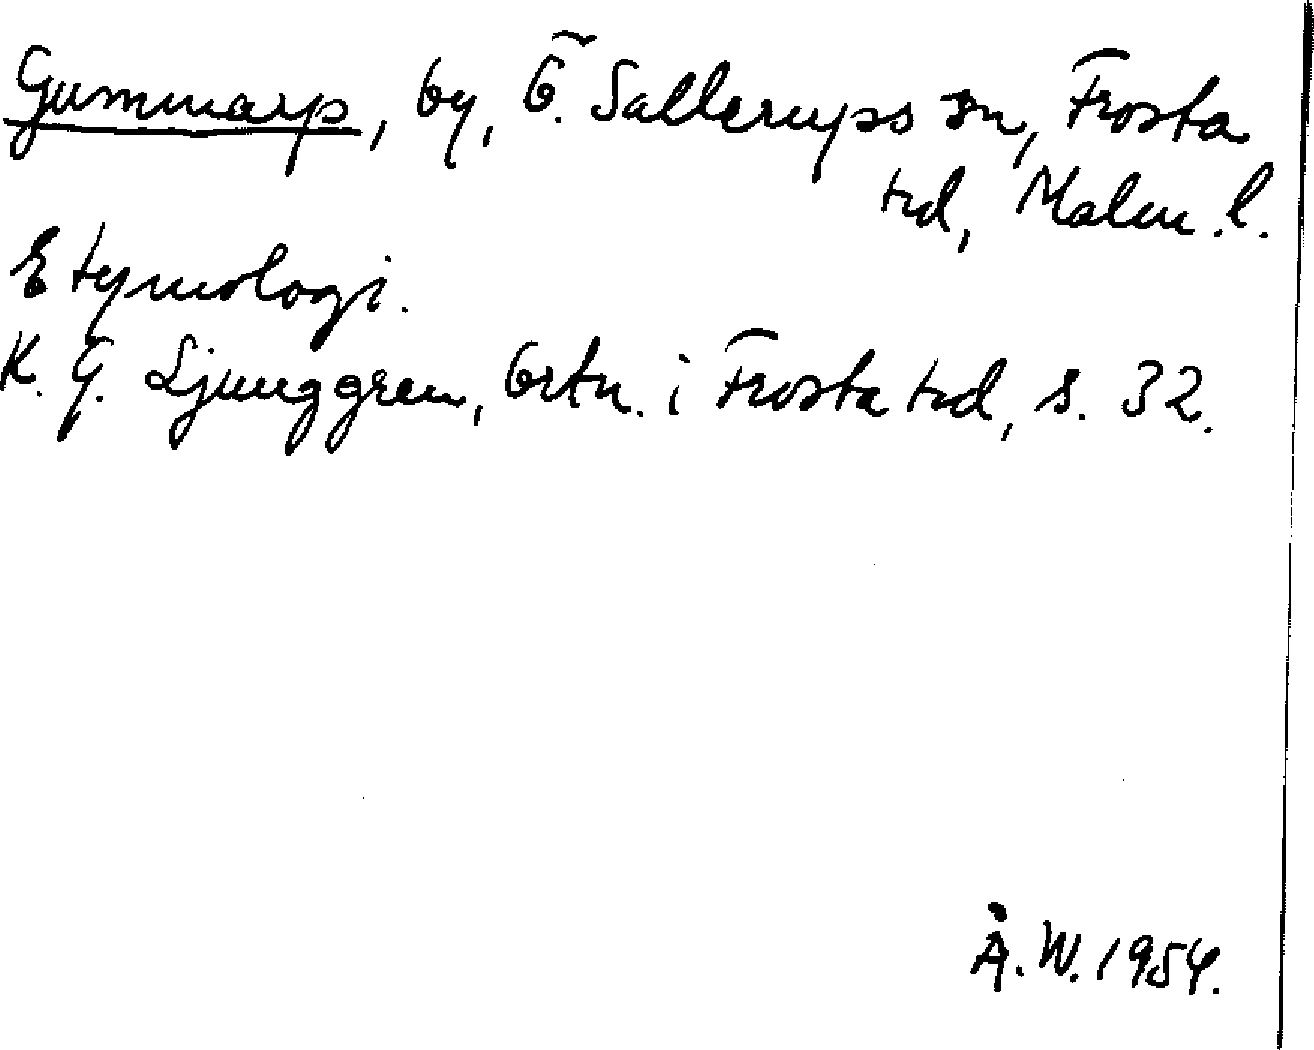 Gummarp, by, Ö. Sallerups sn, Frosta
hd, Malm. l.
Etymologi.
K. G. Ljunggren, Ortn. i Frosta hd, s. 32.
Å. W. 1954.